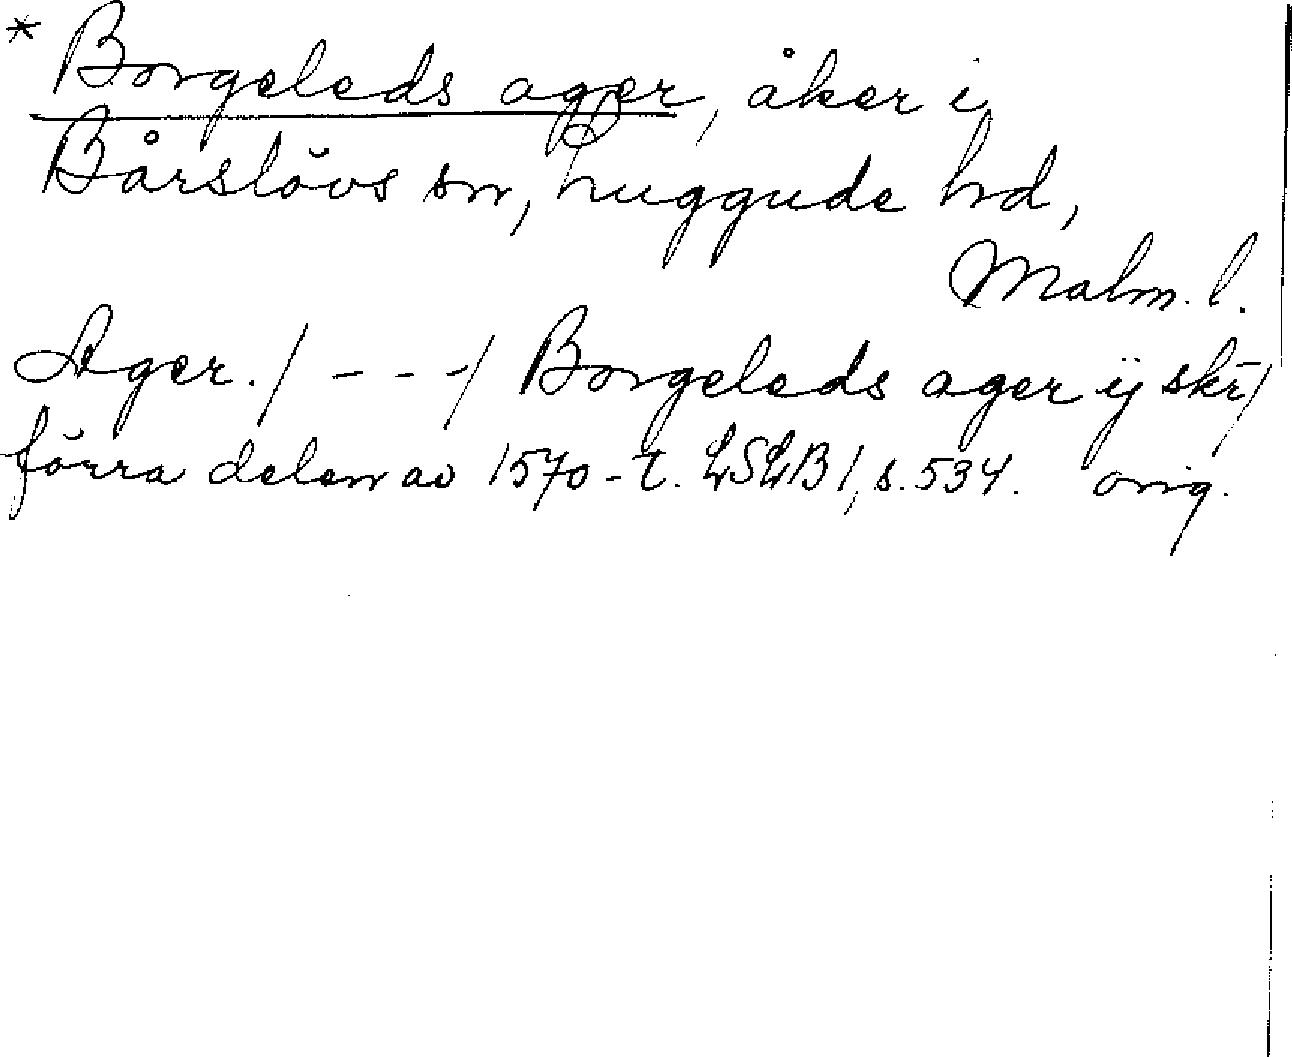 * Borgeleds ager, åker i
Bårslövs sn, Luggude hd,
Malm. l.
Ager. / - - - / Borgeleds ager ij skr /
förra delen av 1570-t. LSLB 1, s. 534. orig.